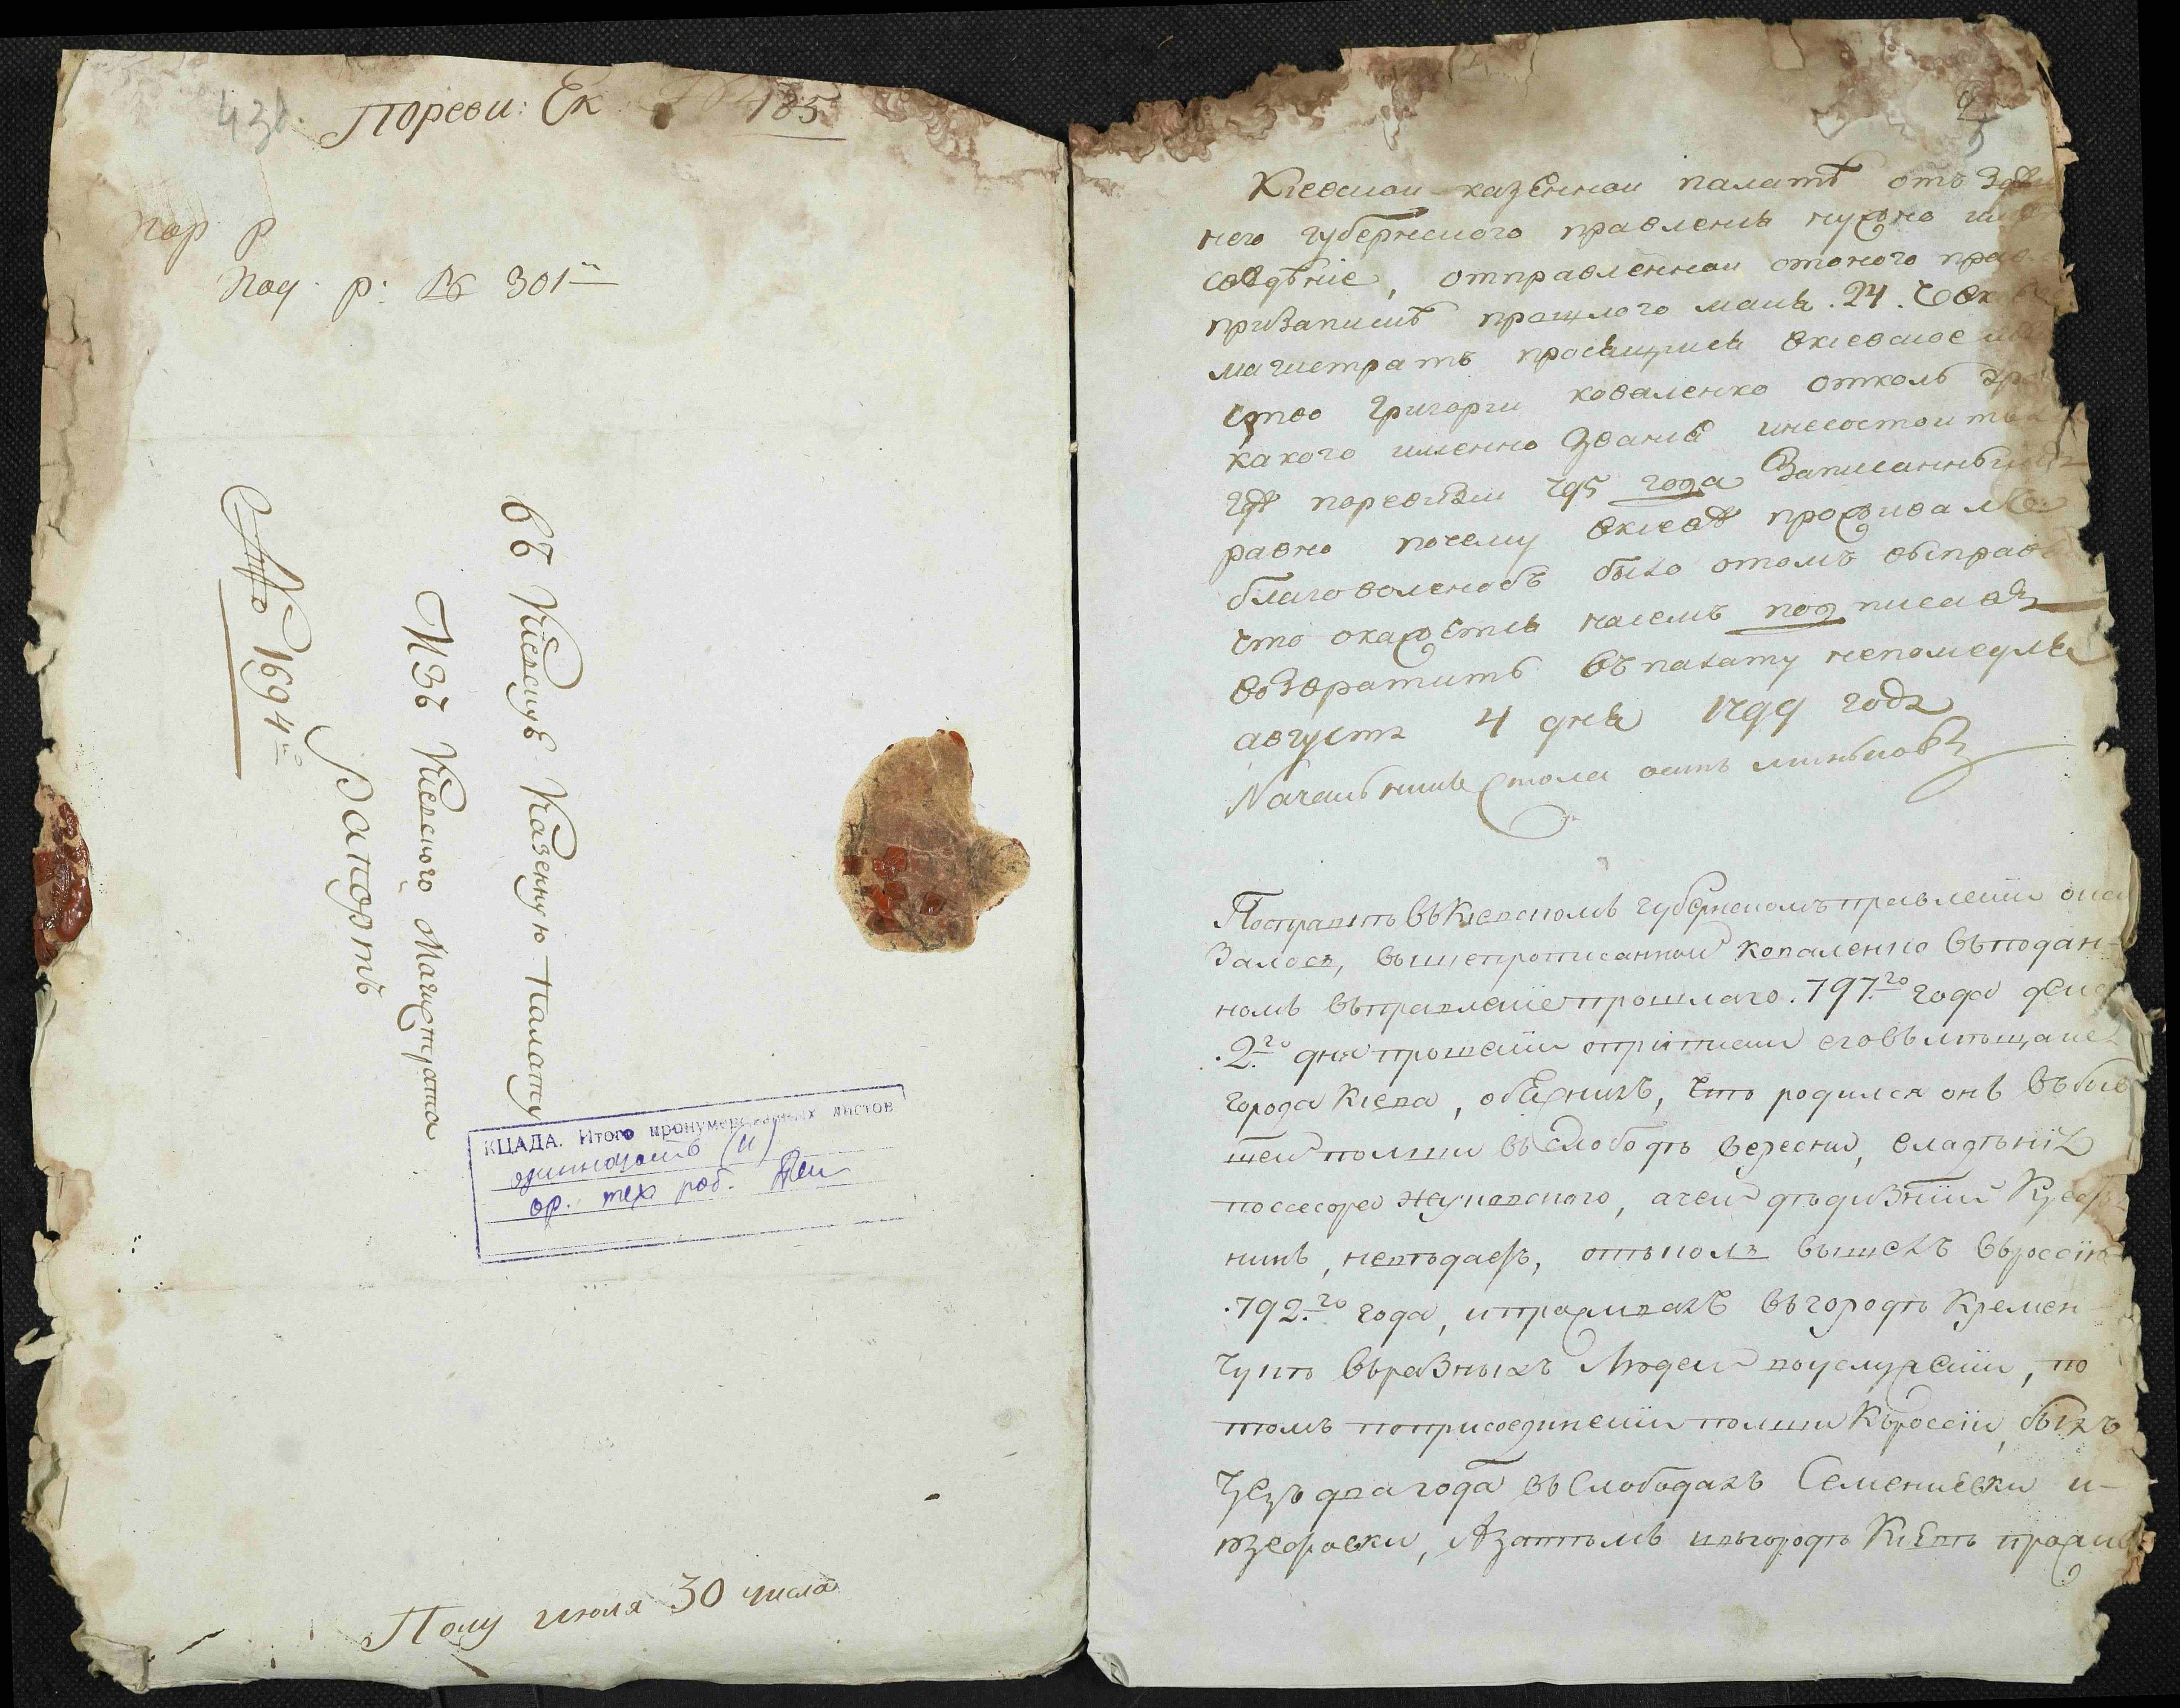 438.
Пореви: Ек 185
Пор р
Под. р: № 301
въ Киевскую Казенную палату
Изъ Киевского Магистрата
рапортъ
№ 1694
КЦАДА. Итого пронумерованных листов
одиннадцать (11)
ор. тех раб.
Полу июля 30 числа
Киевской казенной палатѣ отъ
него губернского правленія нужно
сведѣніе, отправленной отоного
призаписмѣ прошлого маія. 24.
магистратъ просящися вкиевское
ство Григорги коваленко отколь
какого именно званія инесостоитъ
гдѣ поревизіи 795 года Записанныи
равно почему вкиевѣ проживал
благоволенобъ было отомъ выправ
что окажется насемъ подписавъ
возвратить въ палату непомедля
августа 4 дня 1799 года
Начальникъ стола
Посправкѣ въ Киевскомъ губернскомъ правленіи ока
залось, вышепрописанной Коваленко въ подан-
номъ въ правленіе прошлаго. 797.го года
.2.го дня прошеніи оприписки его въ мѣщане
города Киева, обяснилъ, что родился онъ въ бы
шей полши въ Слободѣ Берески, владѣнія
поссесора Жуковского, а чей дѣдизный
никъ, невѣдаетъ, отъколь вышелъ въ россію
.792.го года, и проживалъ въ городѣ Кремен
чукѣ въ разныхъ людей воуслуженіи, по
томъ поприсоединеніи полши Къ россіи, былъ
чрезъ два года въ Слободахъ Семениевки и-
, А затѣмъ и въ городѣ Киевѣ прожив